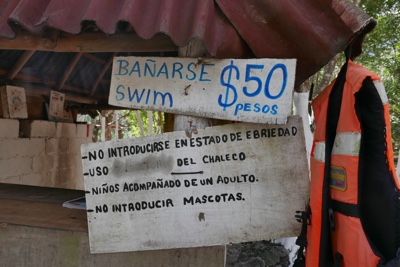 BAÑARSE $50
SWIM PESOS
-NO INTRODUCIRSE EN ESTADO DE EBRIEDAD
-USO DEL CHALECO
-NIÑOS ACOMPAÑADO DE UN ADULTO.
-NO INTRODUCIR MASCOTAS.